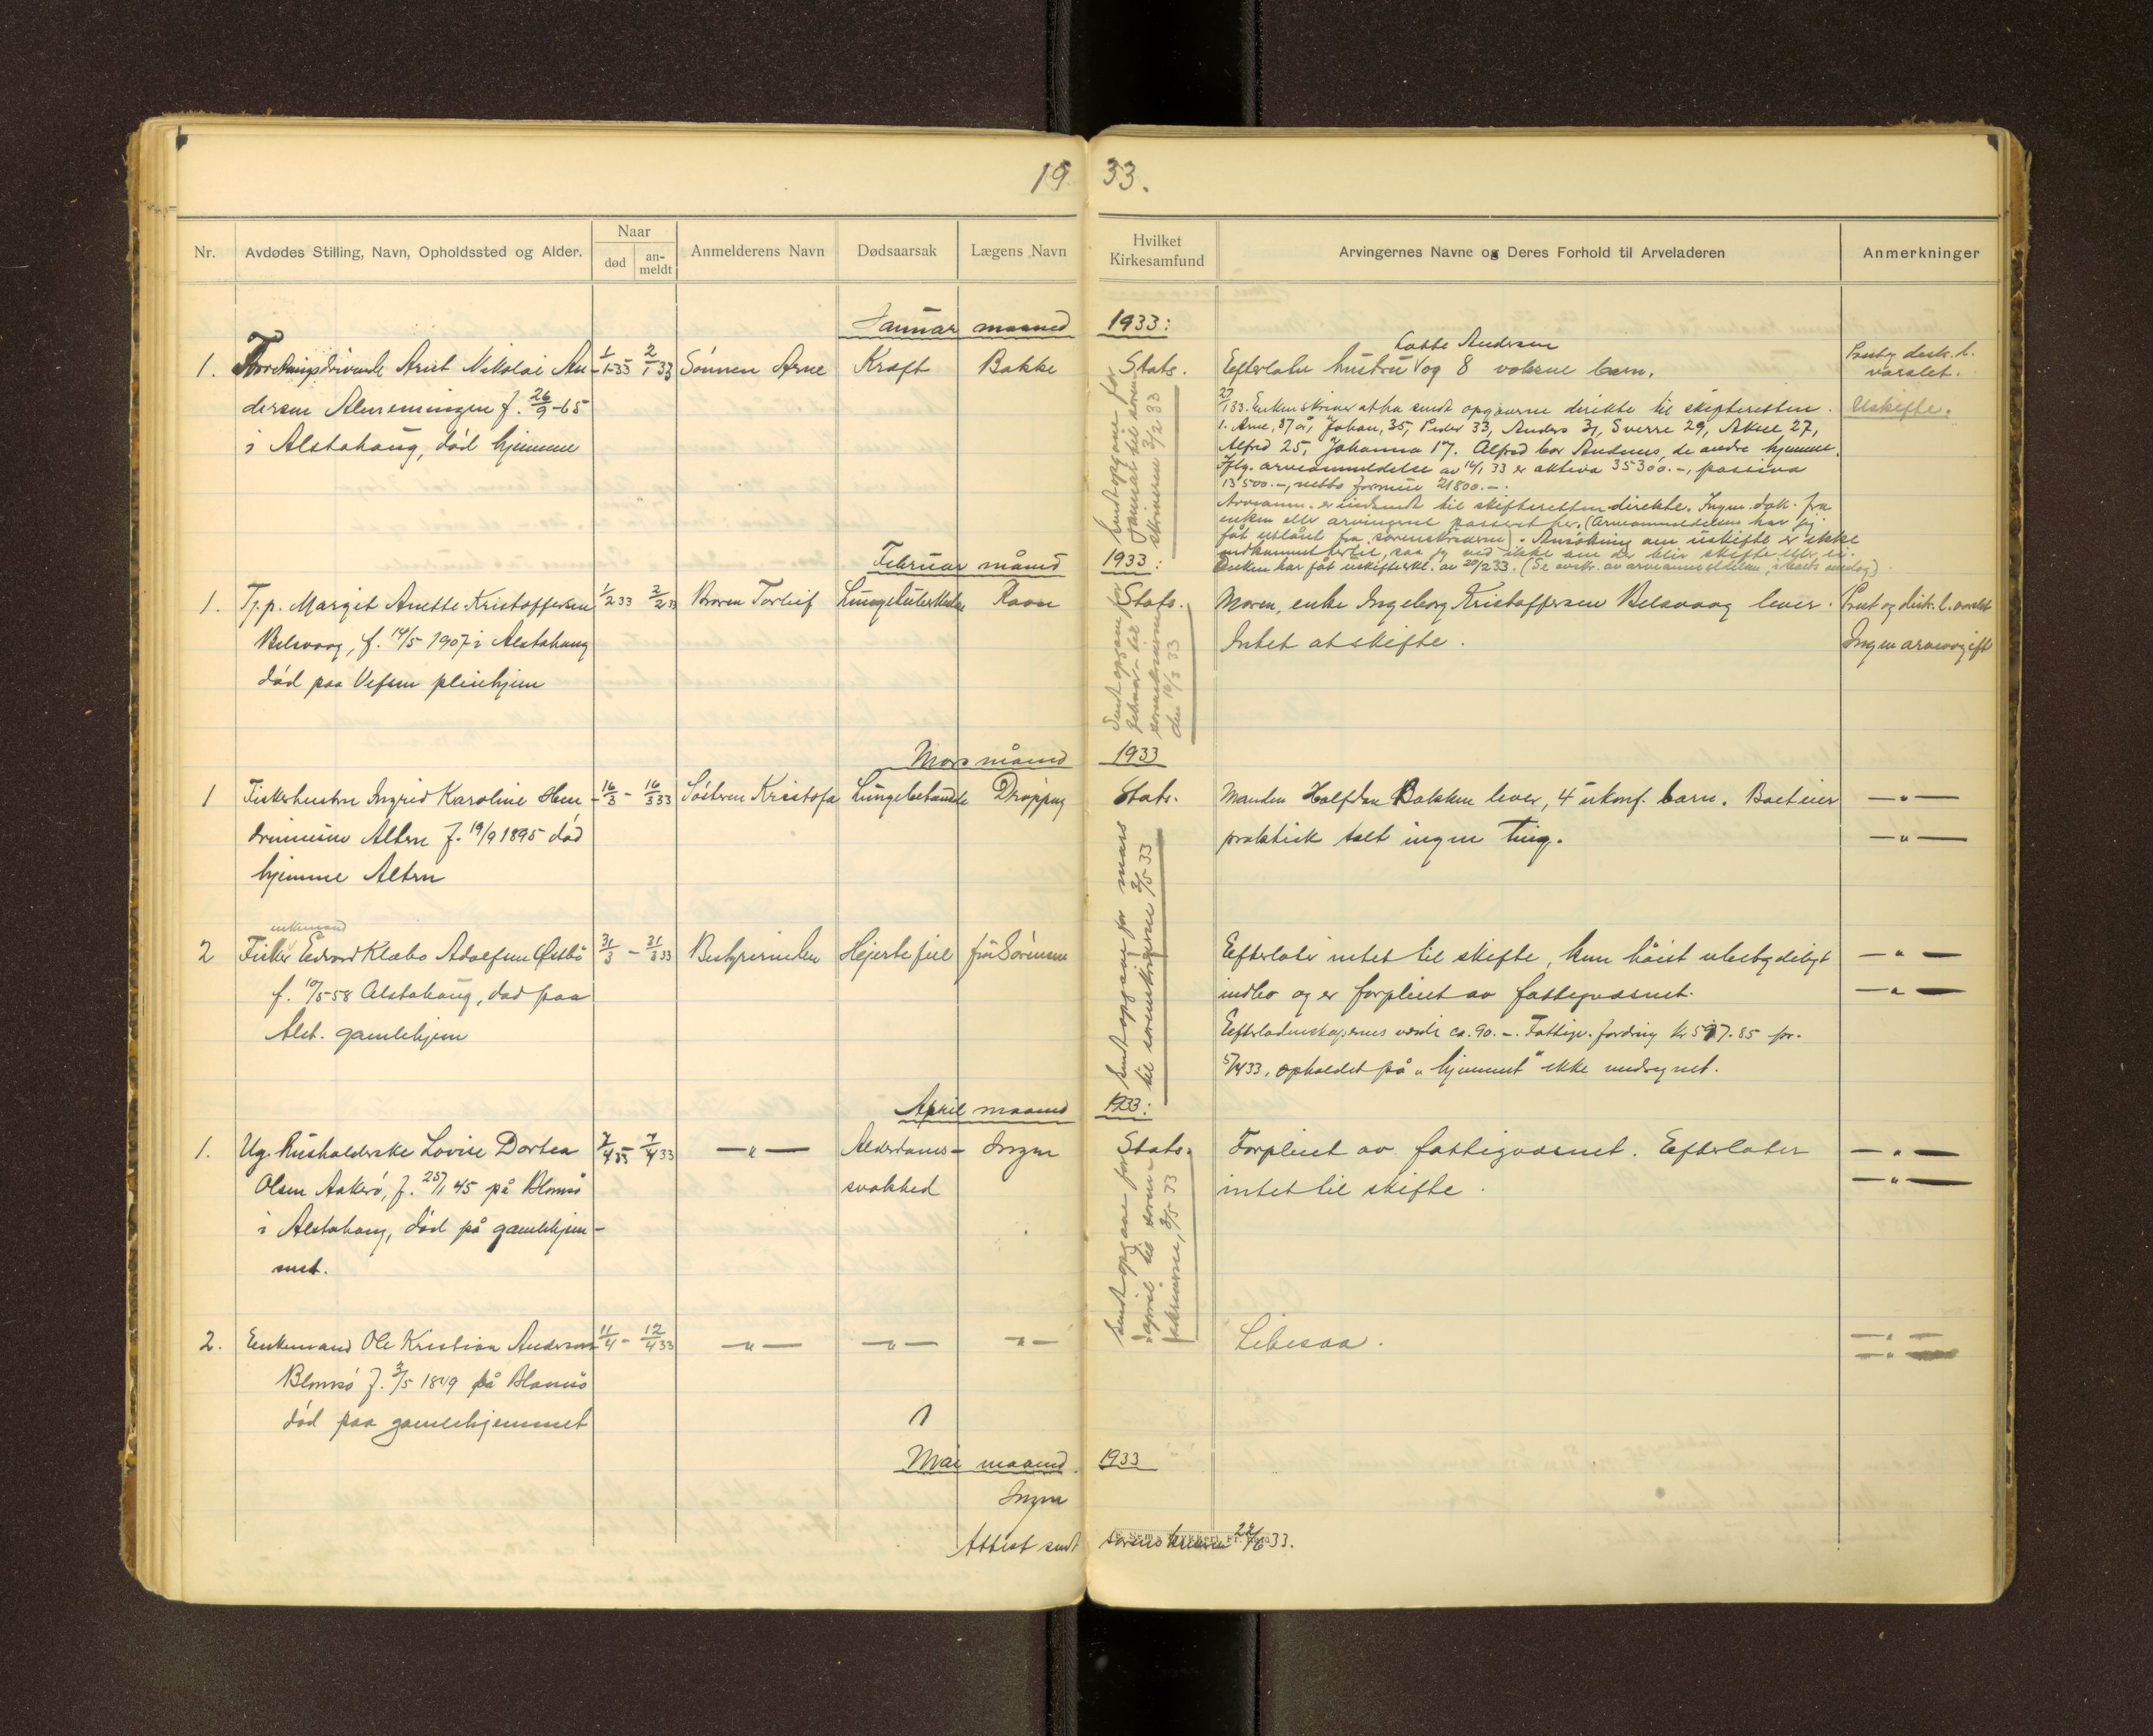 19 33.
Nr. Avdødes Stilling, Navn, Opholdssted og Alder. Naar død an-meldt Anmelderens Navn Dødsaarsak Lægens Navn Hvilket Kirkesamfund Arvingernes Navne og Deres Forhold til Arveladeren Anmerkninger
Januar maaned 1933:
1. Forretningsdrivende Arist Nikolai An- 1/1-33 2/1 33 Sönnen Arne Kræft Bakke Stats. Efterlater hustru Lotte Andersen og 8 voksne barn. Prest og distr. l. varslet.
dersen f. 26/9-65
i Alstahaug, död hjemme
27/1 33. Enken skriver at ha sendt opgaverne direkte til skifteretten. Uskifte.
1. Arne, 37 år, Johan, 35, Peder 33, Anders 31, Sverre 29, Aksel 27,
Alfred 25, Johanna 17. Alfred bor Andenes, de andre hjemme.
Iflg. arveanmeldelse av 16/1 33 er aktiva 35300.-, passiva
13500.-, netto formue 21800.-.
Arveanm. er indsendt til skifteretten direkte. Ingen dok. fra
enken eller arvingerne passert her. (Arveanmeldelsen har jeg
fåt utlånt fra sorenskriveren). Ansökning om uskifte er ikke
indkommet hertil, saa jeg ved ikke om der blir skifte eller ei.
Enken har fåt uskifteerkl. av 20/2 33. (Se avskr. av arveanmeldelsen,
Sendt opgave for
januar til soren-
skriveren 3/2 33
Februar måned 1933:
1. Tj.p. Margit Anette Kristoffersen 1/2 33 2/2 33 Broren Torleif Lungetuberkulose Ravn Stats. Moren, enke Ingeborg Kristoffersen Belsvaag lever. Prest og distr. l. varslet
Belsvaag, f. 14/5 1907 i Alstahaug Intet at skifte. Ingen arveavgift
död paa Vefsen pleiehjem
Sendt opgave for
februar til
sorenskriveren
den 16/3 33
Mars måned 1933
1 Fiskerhustru Ingrid Karoline Hen- 16/3 - 16/3 33 Söstren Kristofa Lungebetændelse Dröpping Stats. Manden Halfdan Bakken lever, 4 ukonf. barn. Boet eier —"—
Altern f. 19/9 1895 död praktisk talt ingen ting. —"—
hjemme Altern
Sendt opgave for mars
til sorenskriveren 3/5 33
enkemand
2 Fisker Edvard Klæbo Adolfsen Östbö 31/3 - 31/3 33 Bestyrerinden Hjertefeil frü Sörensen Efterlater intet til skifte, kun höist ubetydeligt —"—
f. 10/5-58 Alstahaug, död paa indbo og er forpleiet av fattigvæsnet. —"—
Alst. gamlehjem
Efterladenskapernes værdi ca. 90.-. Fattigv. fordring kr 597.85 pr.
5/4 33, opholdet på "hjemmet" ikke medregnet.
April maaned 1933:
1. Ug. husholderske Lovise Dortea 7/4 33 - 7/4 33 —"— Alderdoms- Ingen Stats. Forpleiet av fattigvæsnet. Efterlater —"—
Olsen Aakerö, f. 25/1 45 på Blomsö svakhed intet til skifte. —"—
i Alstahaug, död på gamlehjem-
met.
Sendt opgave for
april til soren-
skriveren, 3/5 33
2. Enkemand Ole Kristian Andersen 11/4 - 12/4 33 —"— —"— —"— Likesaa. —"—
Blomsö f. 3/5 1849 på Blomsö —"—
död paa gamlehjemmet
Mai maaned 1933
Ingen
Attest sendt sorenskriveren 22/6 33.